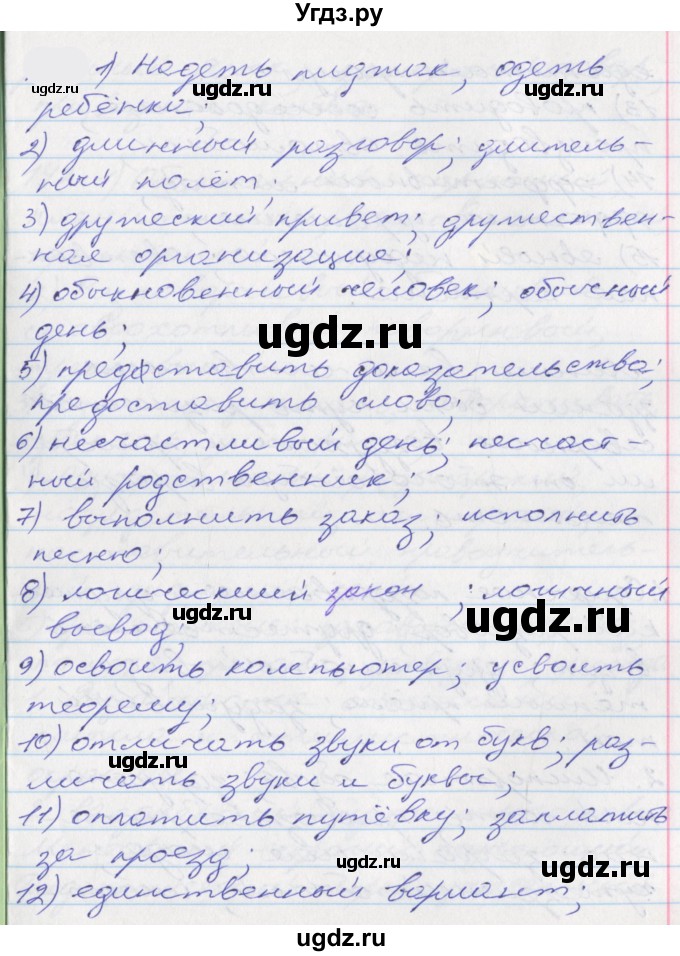 Угдз.ру
1) Надеть пиджак, одеть
ребёнка;
2) длинный разговор; длитель-
ный полёт;
3) дружеский привет; дружествен-
ная организация;
4) обыкновенный человек; обычный
день;
5) представить доказательства;
предоставить слово;
6) несчастливый день; несчаст-
ный родственник;
7) выполнить заказ; исполнить
песню;
8) логический закон; логичный
вывод;
9) освоить компьютер; усвоить
теорему;
10) отличать звуки от букв; раз-
личать звуки и буквы;
11) оплатить путёвку; заплатить
за проезд;
12) единственный вариант;
ugdz.ru
ugdz.ru
ugdz.ru
ugdz.ru
ugdz.ru
ugdz.ru
ugdz.ru
ugdz.ru
ugdz.ru
ugdz.ru